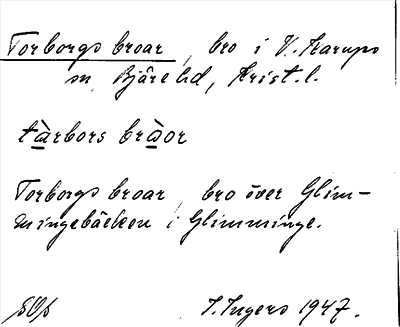 Torborgs broar, bro i V. Karups
sn, Bjäre hd, Krist. l.
tàrbors bràor
Torborgs broar, bro över Glim-
mingebäcken i Glimminge.
I. Ingers 1947.